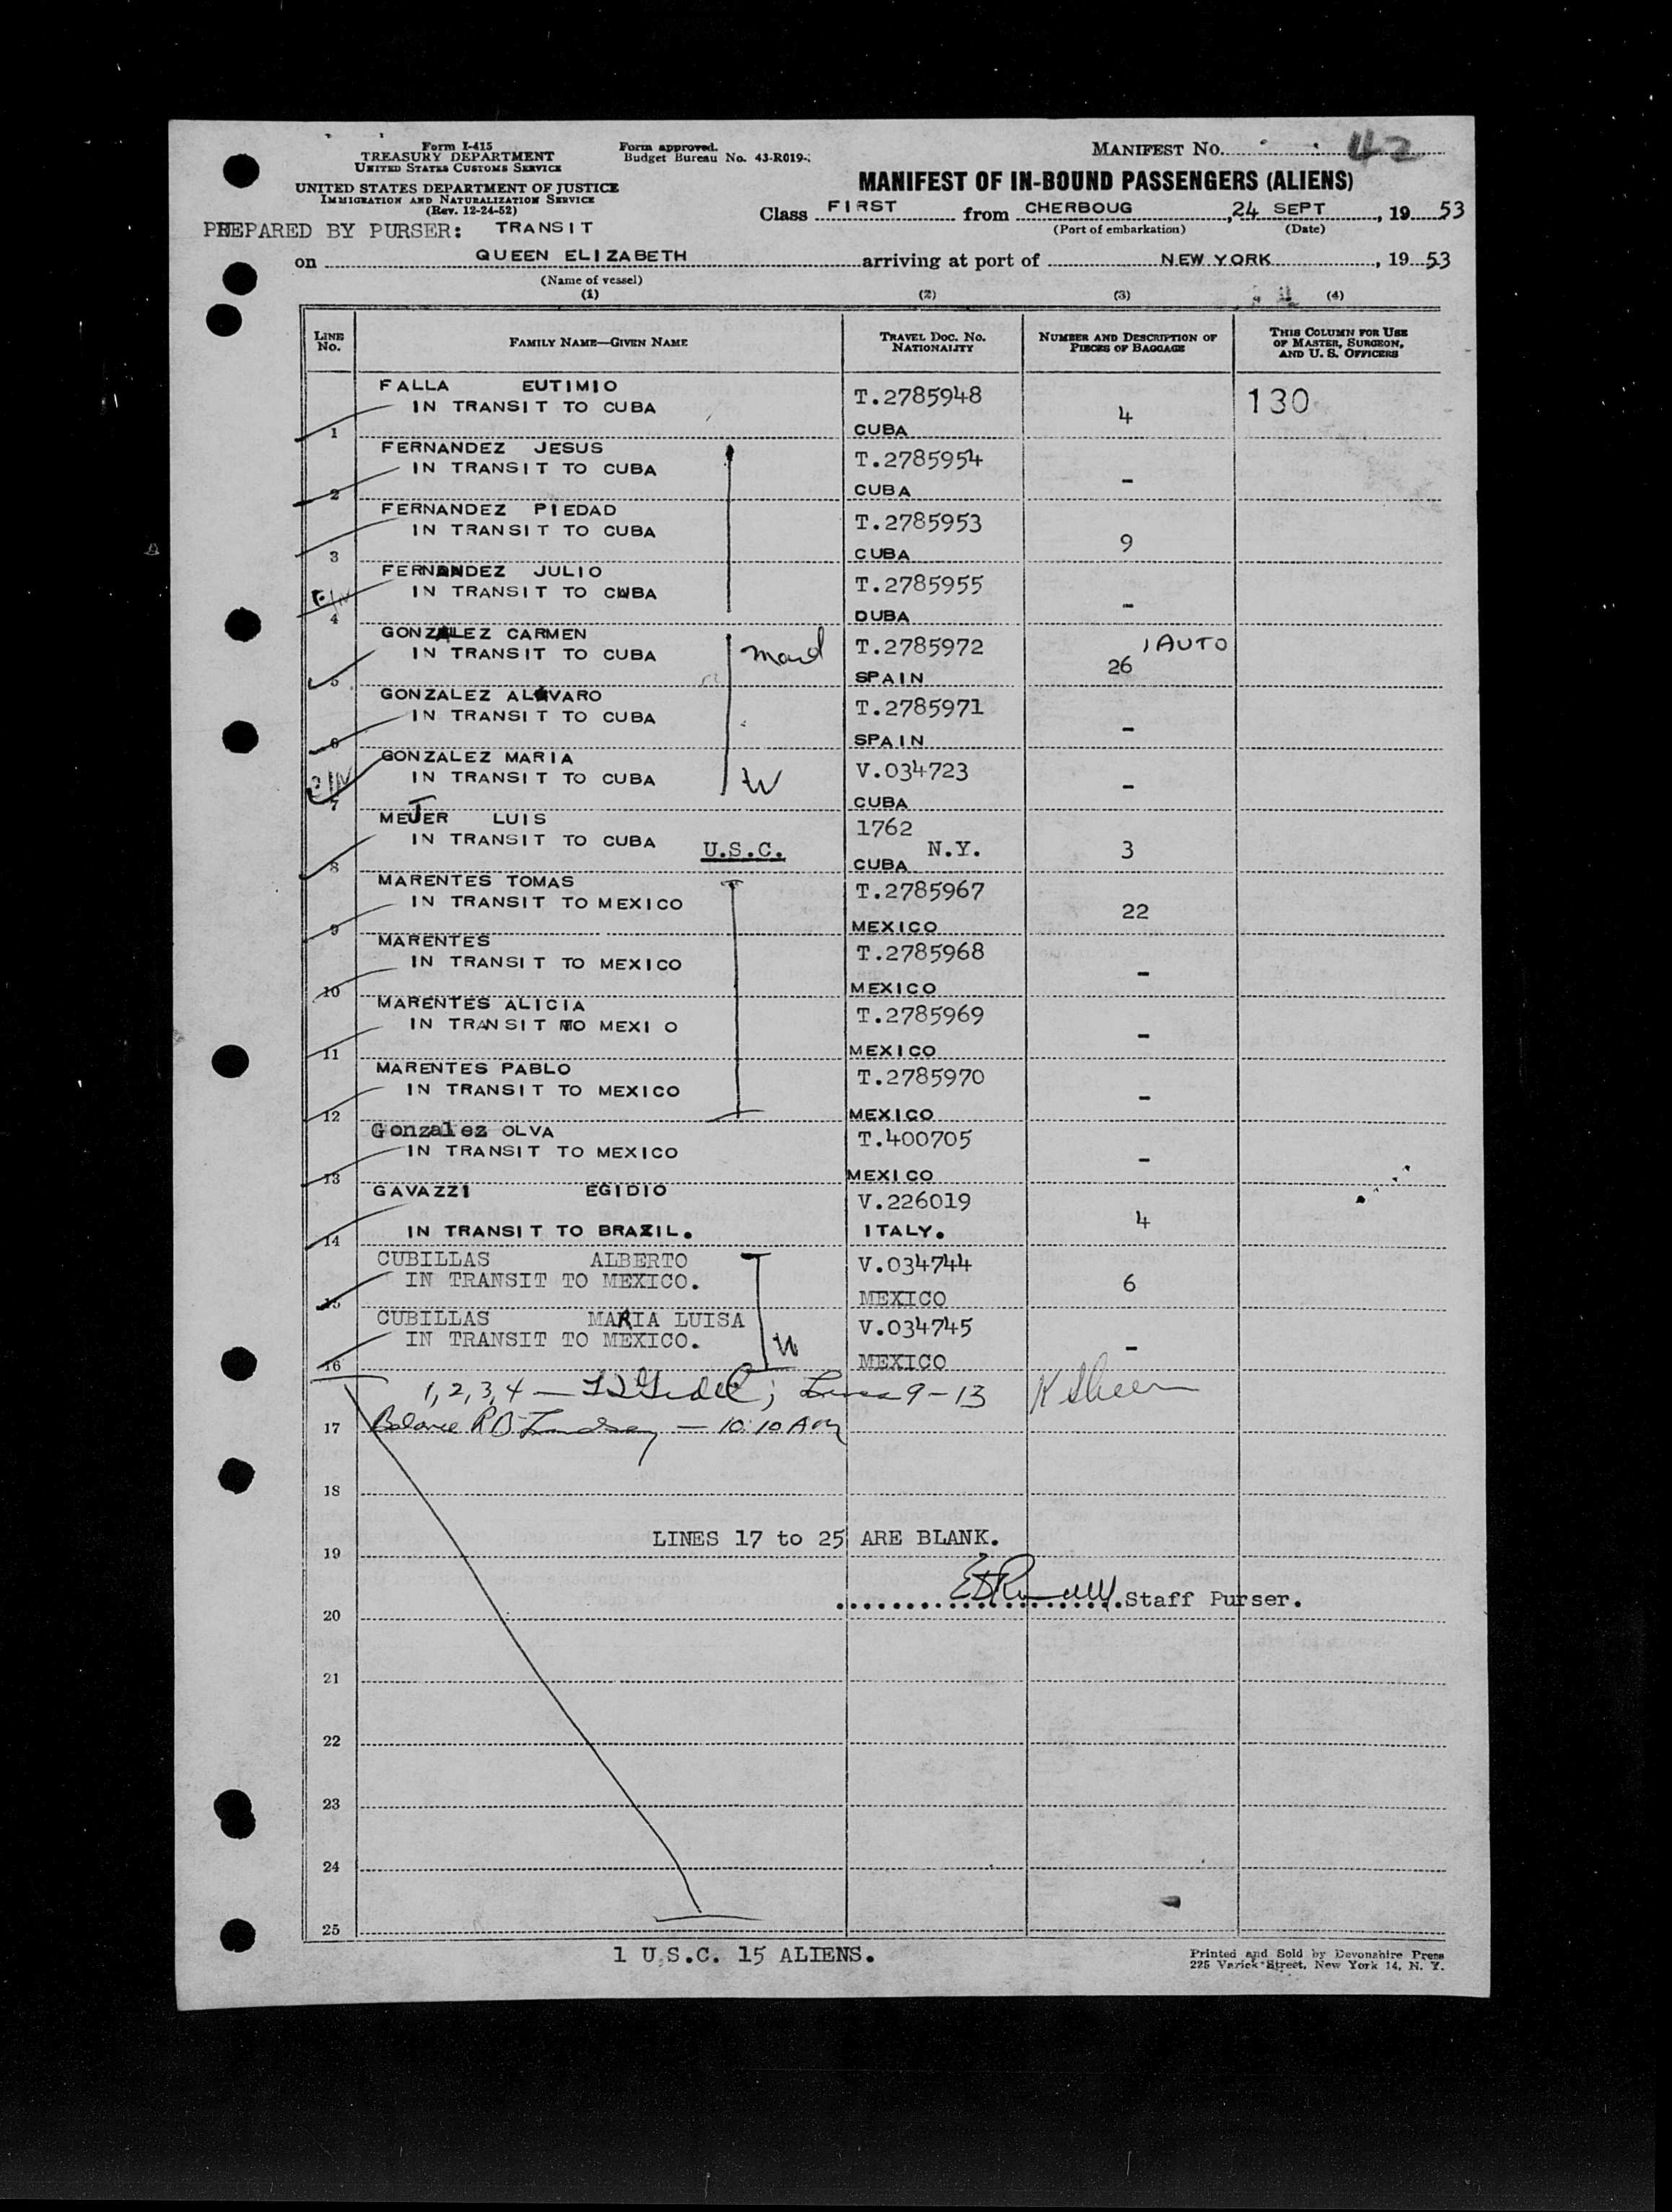 Form I-415
TREASURY DEPARTMENT
UNITED STATES CUSTOMS SERVICE
UNITED STATES DEPARTMENT OF JUSTICE
IMMIGRATION AND NATURALIZATION SERVICE
(Rev. 12-24-52)
Form approved.
Budget Bureau No. 43-R019-
MANIFEST NO. 42
MANIFEST OF IN-BOUND PASSENGERS (ALIENS)
Class FIRST from CHERBOUG, 24 SEPT, 1953
(Port of embarkation) (Date)
PREPARED BY PURSER: TRANSIT
on QUEEN ELIZABETH arriving at port of NEW YORK, 1953
(Name of vessel)
(1) (2) (3) (4)
LINE NO. FAMILY NAME—GIVEN NAME TRAVEL DOC. NO. NATIONALITY NUMBER AND DESCRIPTION OF PIECES OF BAGGAGE THIS COLUMN FOR USE OF MASTER, SURGEON, AND U. S. OFFICERS
FALLA EUTIMIO T.2785948 130
IN TRANSIT TO CUBA 4
1 CUBA
FERNANDEZ JESUS T.2785954
IN TRANSIT TO CUBA -
2 CUBA
FERNANDEZ PIEDAD T.2785953
IN TRANSIT TO CUBA 9
3 CUBA
FERNANDEZ JULIO T.2785955
IN TRANSIT TO CUBA -
4 DUBA
GONZALEZ CARMEN T.2785972 1 AUTO
IN TRANSIT TO CUBA maid 26
5 SPAIN
GONZALEZ ALVARO T.2785971
IN TRANSIT TO CUBA -
6 SPAIN
GONZALEZ MARIA V.034723
IN TRANSIT TO CUBA W -
7 CUBA
MEJER LUIS 1762
IN TRANSIT TO CUBA U.S.C. N.Y. 3
8 CUBA
MARENTES TOMAS T.2785967
IN TRANSIT TO MEXICO 22
9 MEXICO
MARENTES T.2785968
IN TRANSIT TO MEXICO -
10 MEXICO
MARENTES ALICIA T.2785969
IN TRANSIT TO MEXI O -
11 MEXICO
MARENTES PABLO T.2785970
IN TRANSIT TO MEXICO -
12 MEXICO
Gonzalez OLVA T.400705
IN TRANSIT TO MEXICO -
13 MEXICO
GAVAZZI EGIDIO V.226019
4
14 IN TRANSIT TO BRAZIL. ITALY.
CUBILLAS ALBERTO V.034744
IN TRANSIT TO MEXICO. 6
15 MEXICO
CUBILLAS MARIA LUISA V.034745
IN TRANSIT TO MEXICO. W -
16 MEXICO
1, 2, 3, 4 — ; Lines 9-13
17 Balance R B Lindsay — 10:10 AM
18
LINES 17 to 25 ARE BLANK.
19
Staff Purser.
20
21
22
23
24
25
1 U.S.C. 15 ALIENS.
Printed and Sold by Devonshire Press
225 Varick Street, New York 14, N. Y.